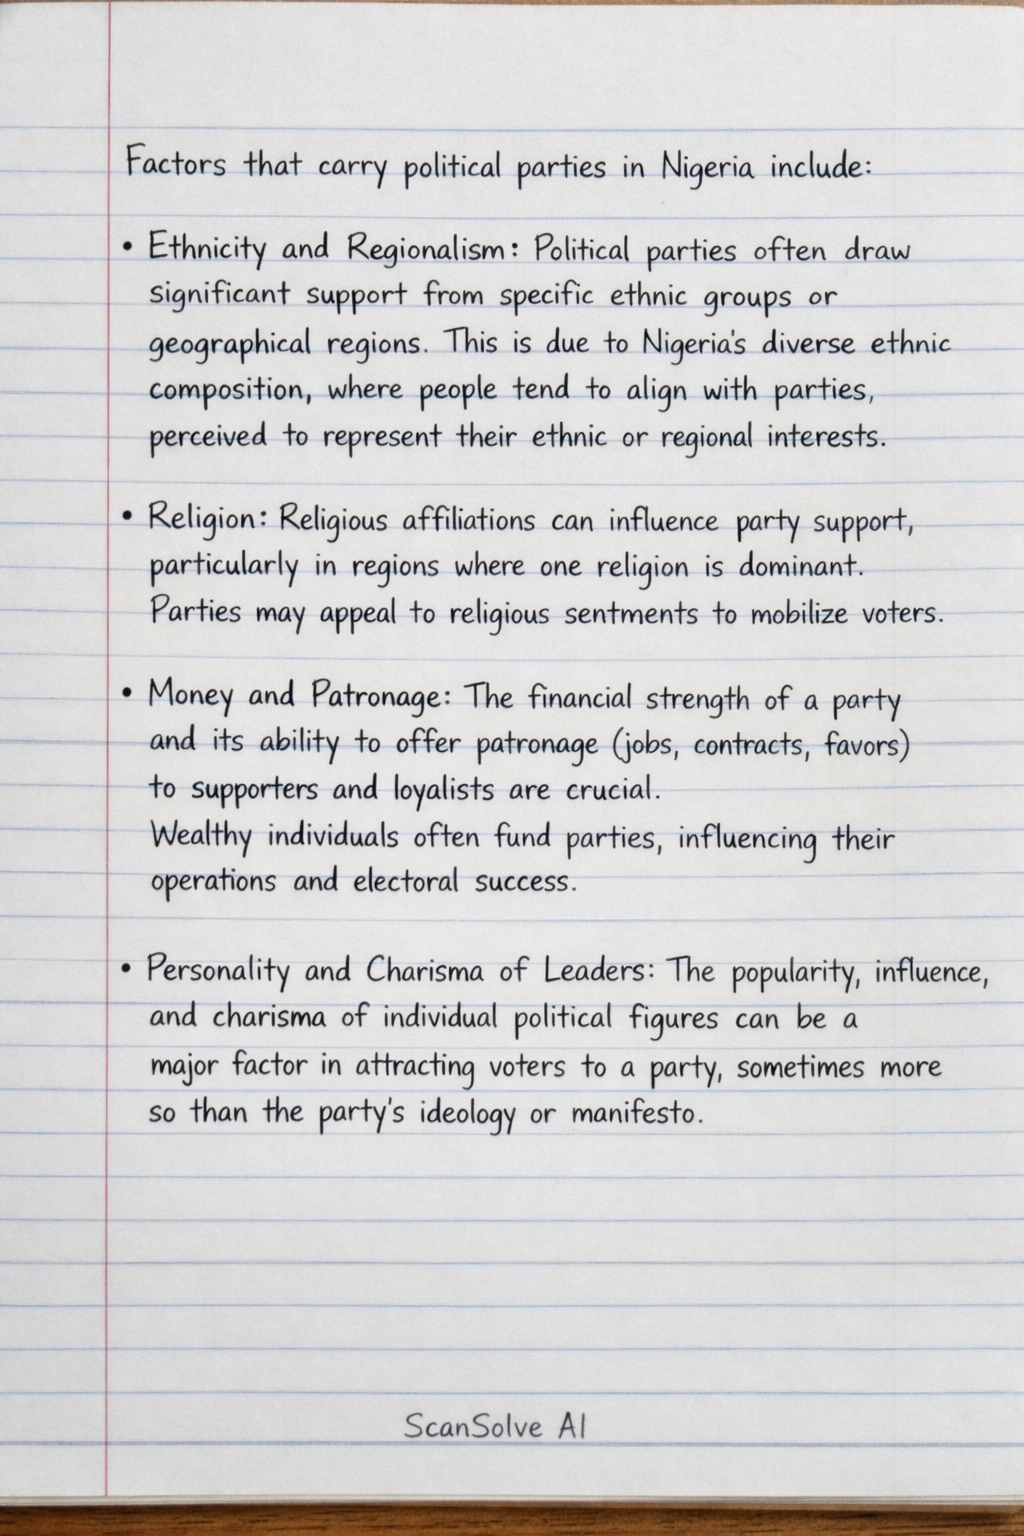 Factors that carry political parties in Nigeria include:
• Ethnicity and Regionalism: Political parties often draw
significant support from specific ethnic groups or
geographical regions. This is due to Nigeria's diverse ethnic
composition, where people tend to align with parties,
perceived to represent their ethnic or regional interests.
• Religion: Religious affiliations can influence party support,
particularly in regions where one religion is dominant.
Parties may appeal to religious sentments to mobilize voters.
• Money and Patronage: The financial strength of a party
and its ability to offer patronage (jobs, contracts, favors)
to supporters and loyalists are crucial.
Wealthy individuals often fund parties, influencing their
operations and electoral success.
• Personality and Charisma of Leaders: The popularity, influence,
and charisma of individual political figures can be a
major factor in attracting voters to a party, sometimes more
so than the party's ideology or manifesto.
ScanSolve AI